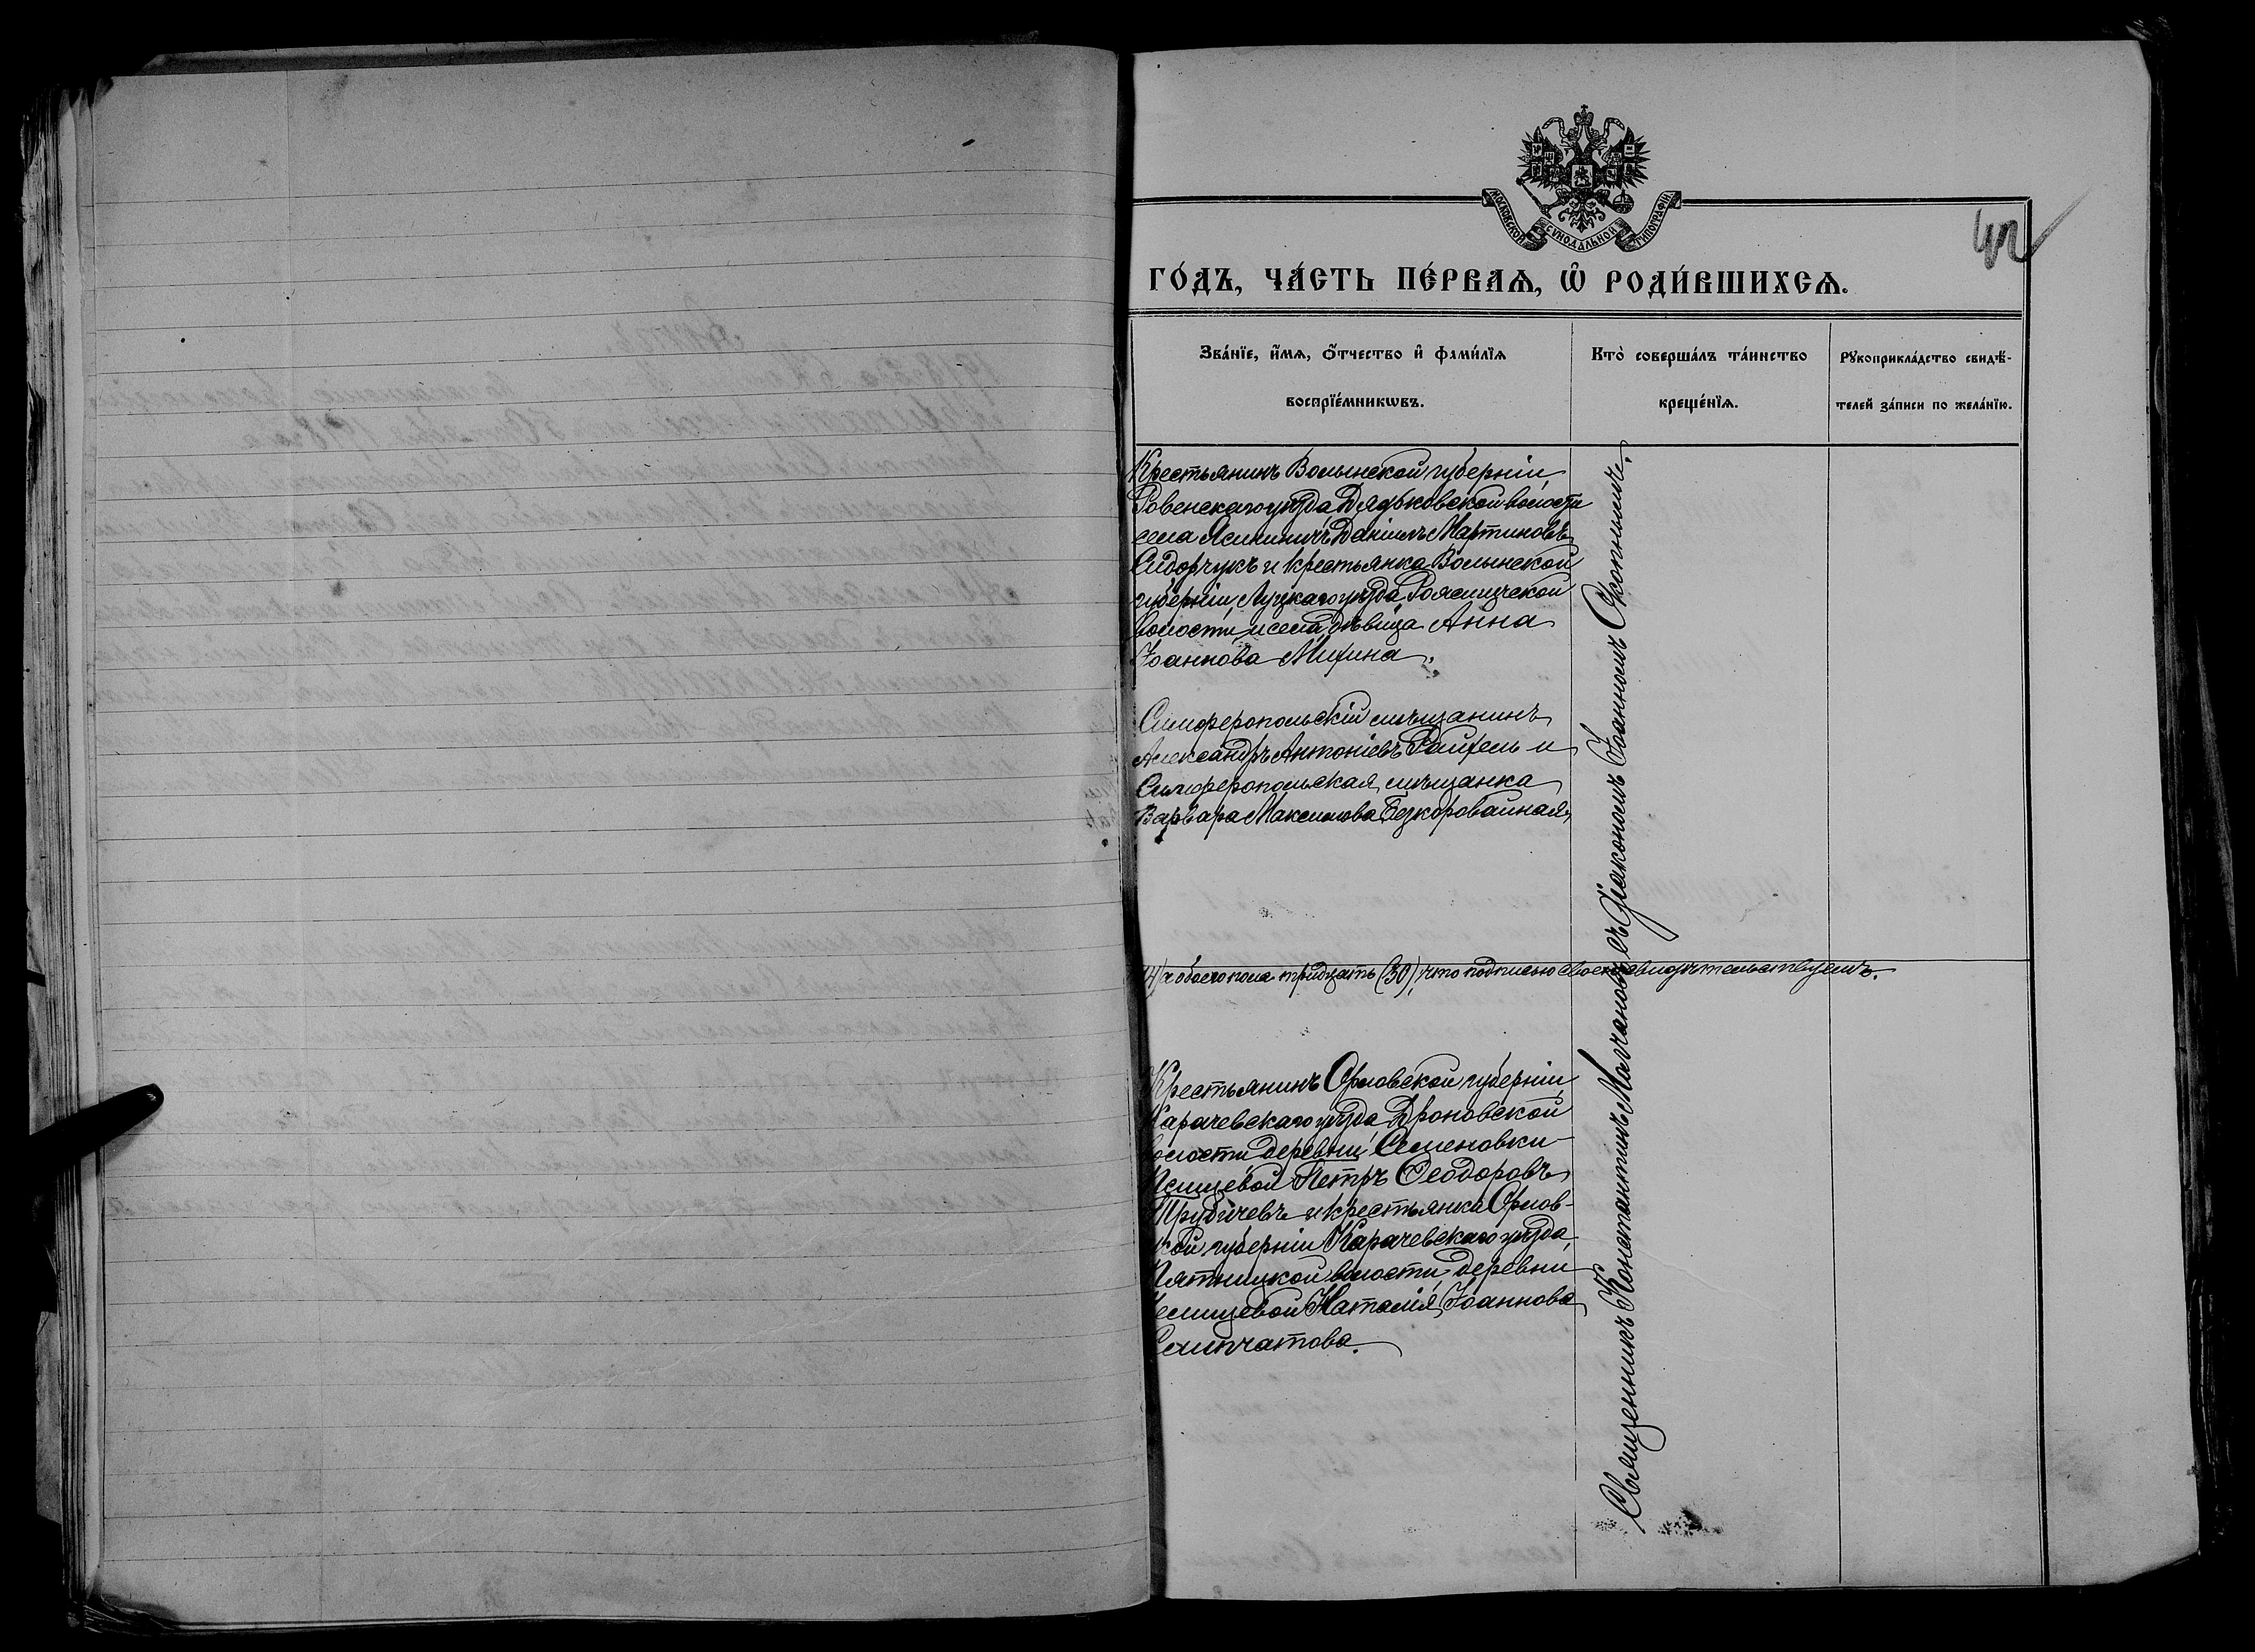 МОСКОВСКОЙ СѴНОДАЛЬНОЙ ТИПОГРАФІИ
42
ГО́ДЪ, ЧА́СТЬ ПЕ́РВАѦ, Ѡ҆ РОДИ́ВШИХСѦ.
Зва́нїе, и҆́мѧ, ѻ҆́тчество и҆ фами́лїѧ
воспрїе́мникѡвъ.
Кто̀ соверша́лъ та́инство
креще́нїѧ.
Рꙋкоприкла́дство свидѣ́-
телей за́писи по жела́нїю.
Крестьянинъ Волынской губерніи,
Ровенскаго уѣзда Дядьковской волости
села Ясининичъ Даніилъ Мартиновъ
Сидорчукъ и крестьянка Волынской
губерніи, Луцкаго уѣзда,
волости и села дѣвица Анна
Іоаннова Михина.
Симферопольскій мѣщанинъ
Александръ Антоніевъ и
Симферопольская мѣщанка
Варвара Максимова Безкоровайная,
14) а обоего пола тридцать (30), что подписью своею свидѣтельствуемъ.
Крестьянинъ Орловской губерніи
Карачевскаго уѣзда, Дроновской
волости деревни Семеновки-
Петръ Ѳеодоровъ
Трубичевъ и крестьянка Орлов-
ской губерніи Карачевскаго уѣзда,
Пятницкой волости, деревни
Наталія Іоаннова
Священникъ Константинъ Молчановъ съ Діакономъ Іоанномъ Скопничъ.